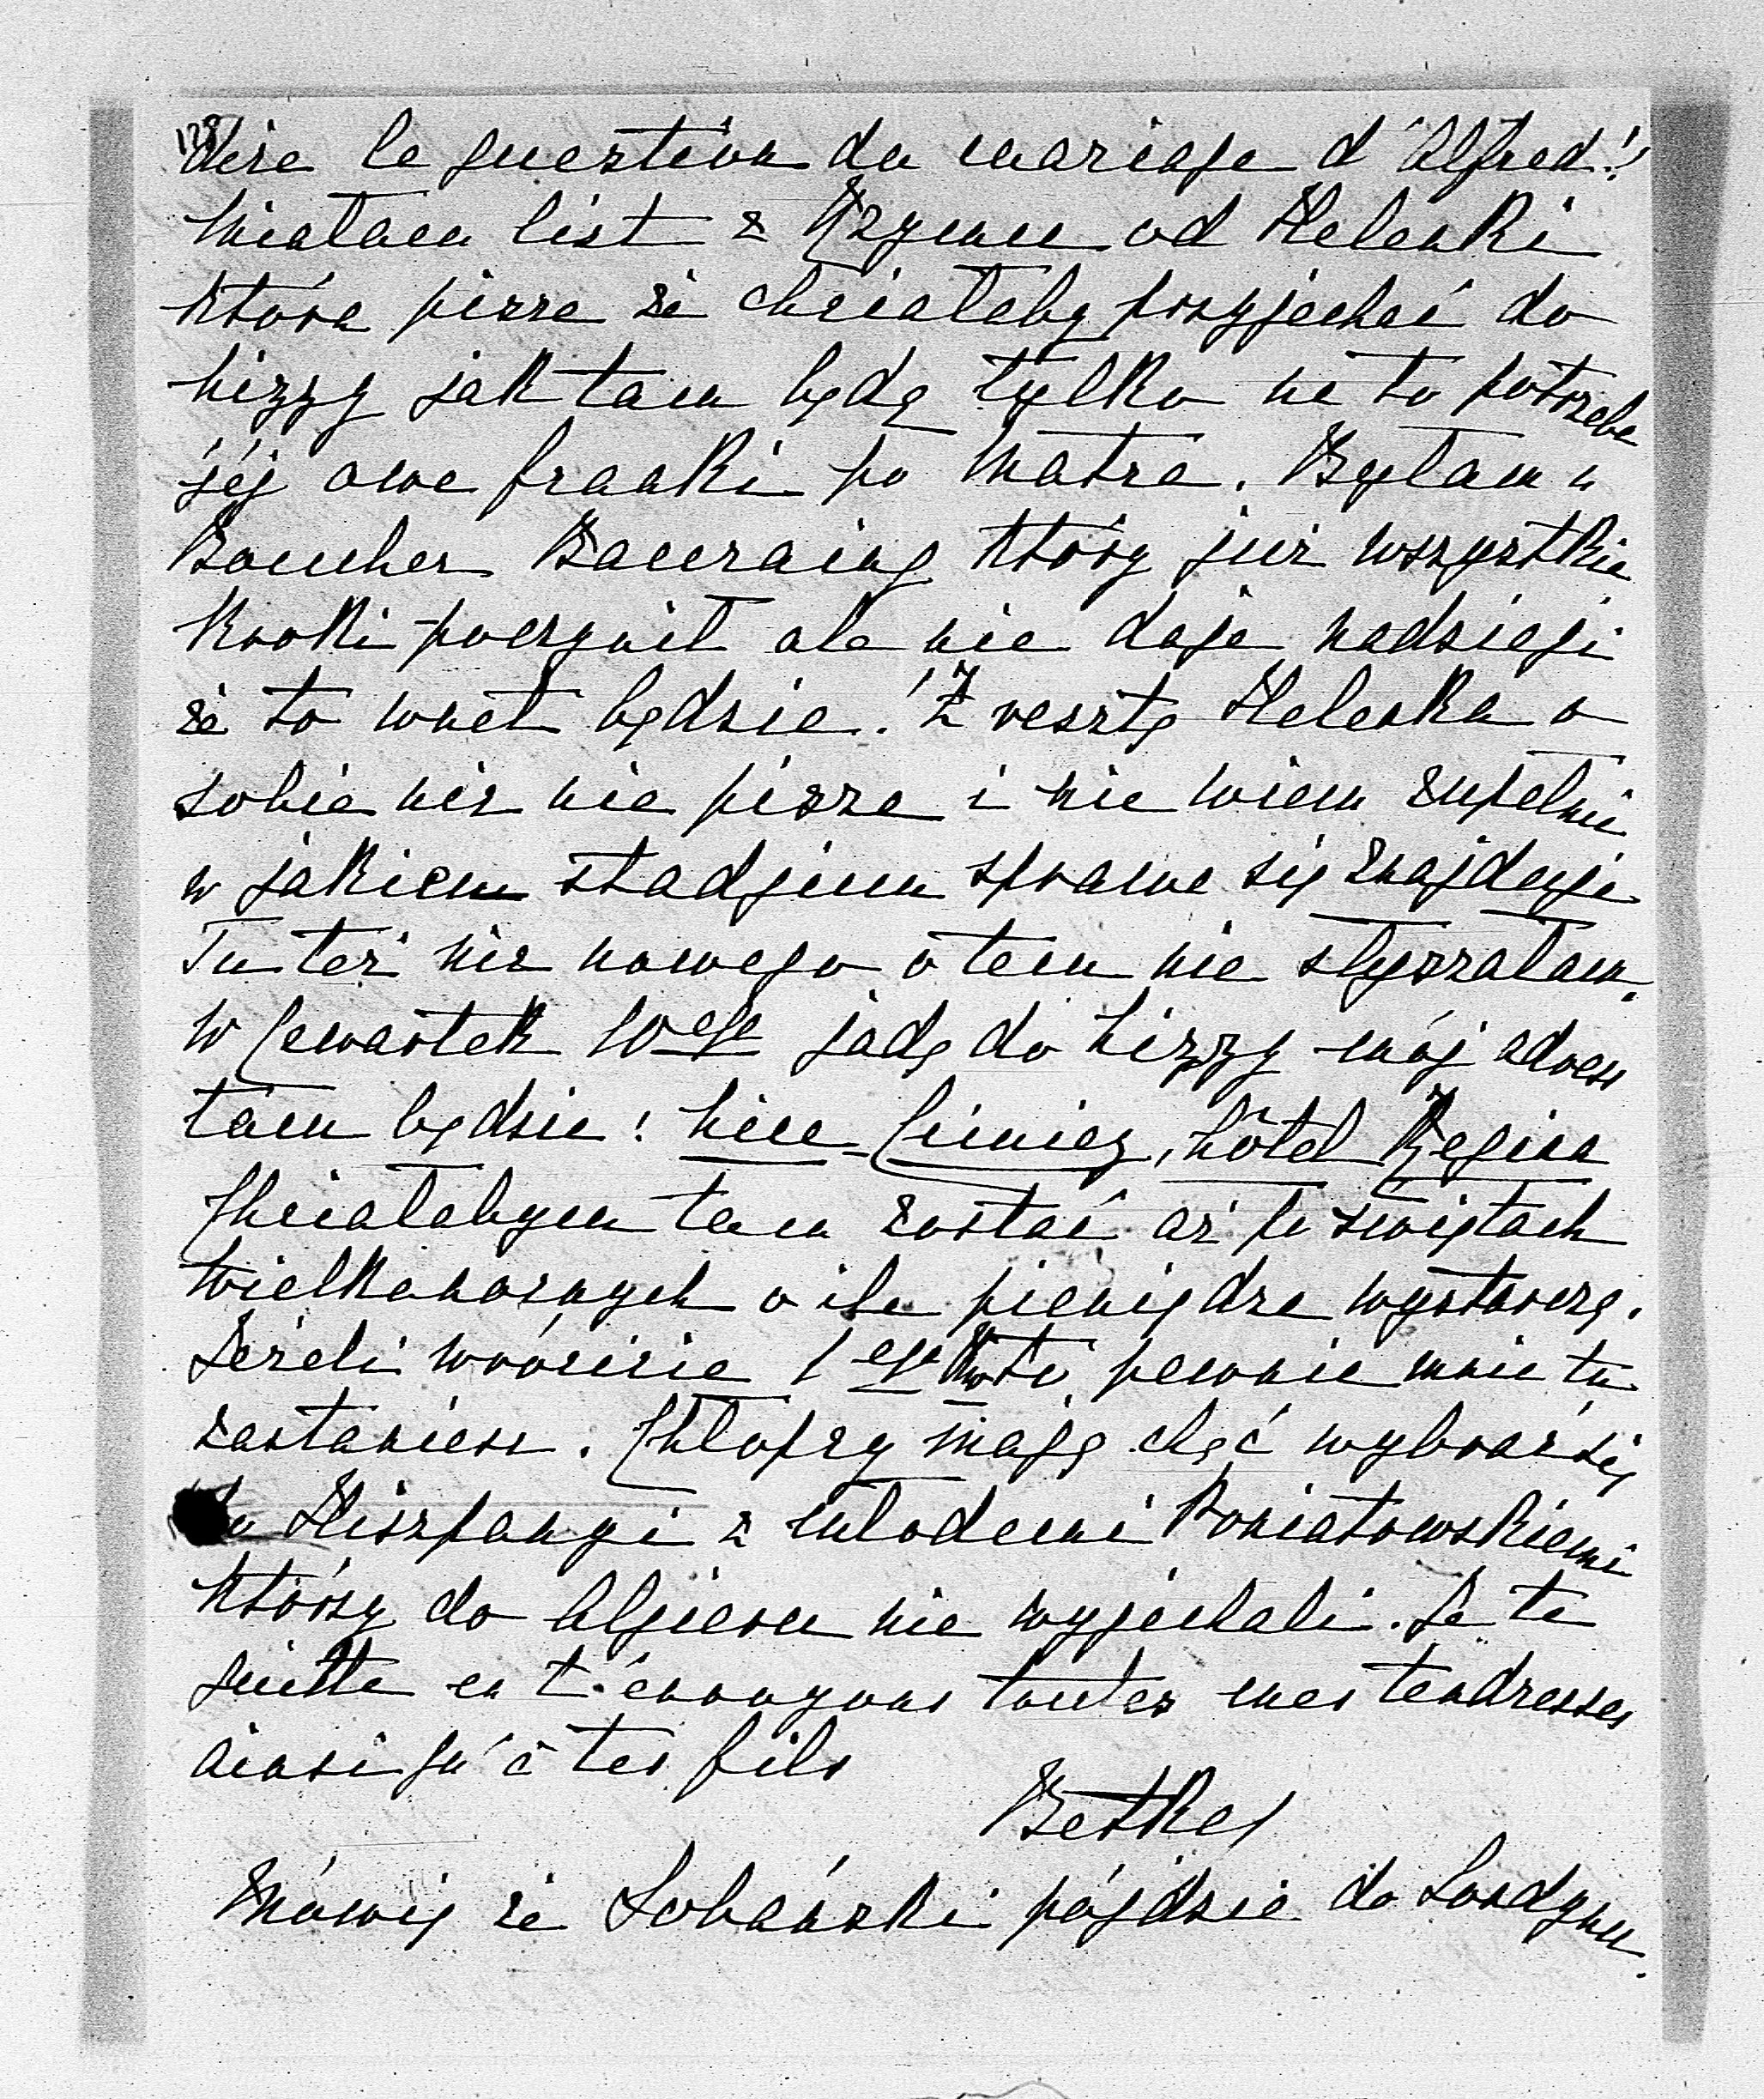 128
dire la question du mariage d'Alfred!!
Miałam list z Rzymu od Helenki
która pisze że chciałaby przyjechać do
Nizzy jak tam będę tylko na to potrzeba
jéj owe franki po Matce. Byłam u
Boucher który już wszystkie
kroki poczynił ale nie daje nadzieji
że to wnet będzie! Z resztą Helenka o
sobie nic nie pisze i nie wiem zupełnie
w jakiem stadjum sprawa się znajduje
Tu też nic nowego o tem nie słyszałam.
W Czwartek 10ego jadę do Nizzy mój adres
tam będzie: Nice-Cimiez, hôtel Regina
Chciałabym tam zostać aż po świętach
Wielkanocnych o ile pieniądze wystarczą.
Jeżeli wrócicie 1ego pewnie mnie tu
zastaniesz. Chłopcy mają chęć wybrać się
do Hiszpanji z młodemi Poniatowskiemi
którzy do Algieru nie wyjechali. Je te
quitte en t'envoyant toutes mes tendresses
ainsi qu'à tes fils
Betka
Mówią że Łobanski pójdzie do Londynu.